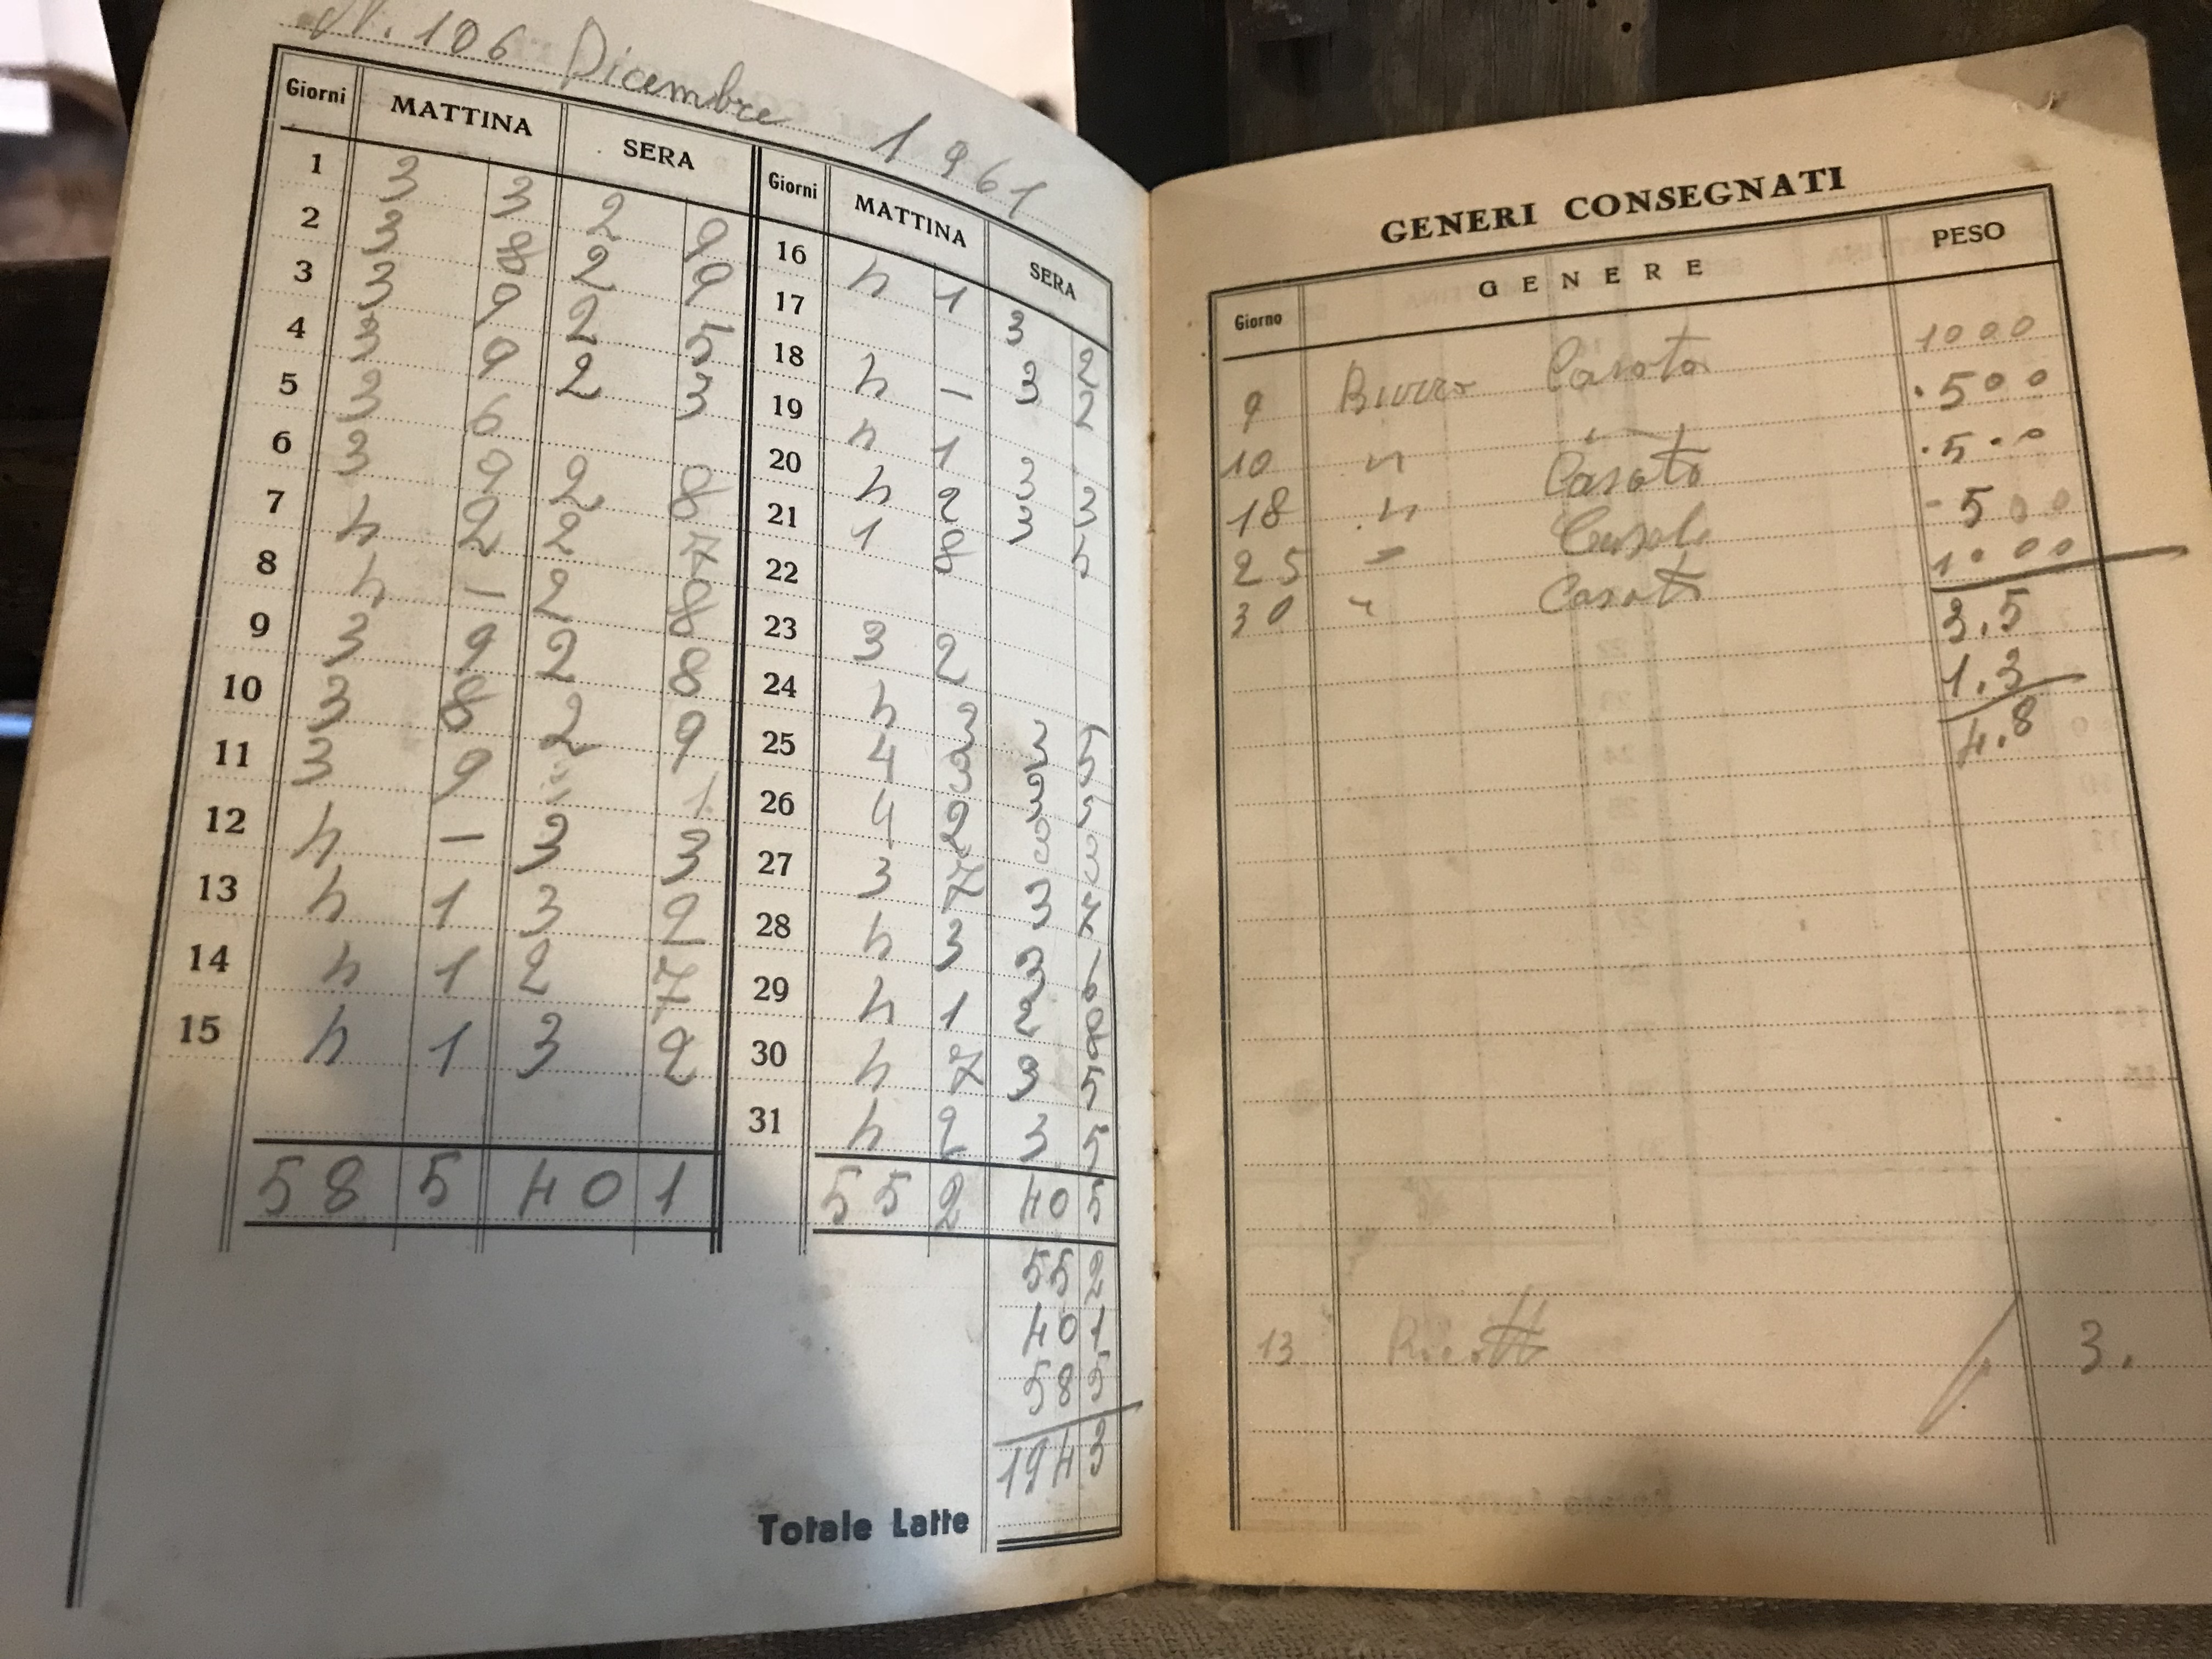 N. 106 Dicembre 1961
Giorni MATTINA SERA
1 3 3 2 9
2 3 8 2 9
3 3 9 2 5
4 3 9 2 3
5 3 6
6 3 9 2 8
7 4 2 2 7
8 4 - 2 8
9 3 9 2 8
10 3 8 2 9
11 3 9 1
12 4 - 3 3
13 4 1 3 2
14 4 1 2 7
15 4 1 3 2
58 5 40 1
Giorni MATTINA SERA
16 4 1 3 2
17
18 4 - 3 2
19 4 1
20 4 2 3 3
21 1 8 3 5
22
23 3 2
24 4 3 3 5
25 4 3 3 5
26 4 2 3 3
27 3 7 3 7
28 4 3 3 6
29 4 1 2 8
30 4 7 3 5
31 4 2 3 5
55 2 40 5
55 2
40 1
58 5
194 3
Totale Latte
GENERI CONSEGNATI
Giorno GENERE PESO
9 Burro Casata 1000
10 " " 500
18 " Casata 500
25 " 500
30 " Casata 1.000
3.5
1.3
4.8
13 3.